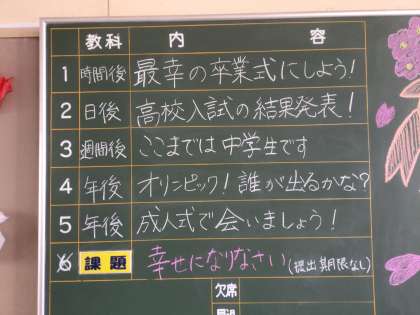 教科 内容
1 時間後 最幸の卒業式にしよう!
2 日後 高校入試の結果発表!
3 週間後 ここまでは中学生です
4 年後 オリンピック!誰が出るかな?
5 年後 成人式で会いましょう!
6 課題 幸せになりなさい(提出期限なし)
欠席